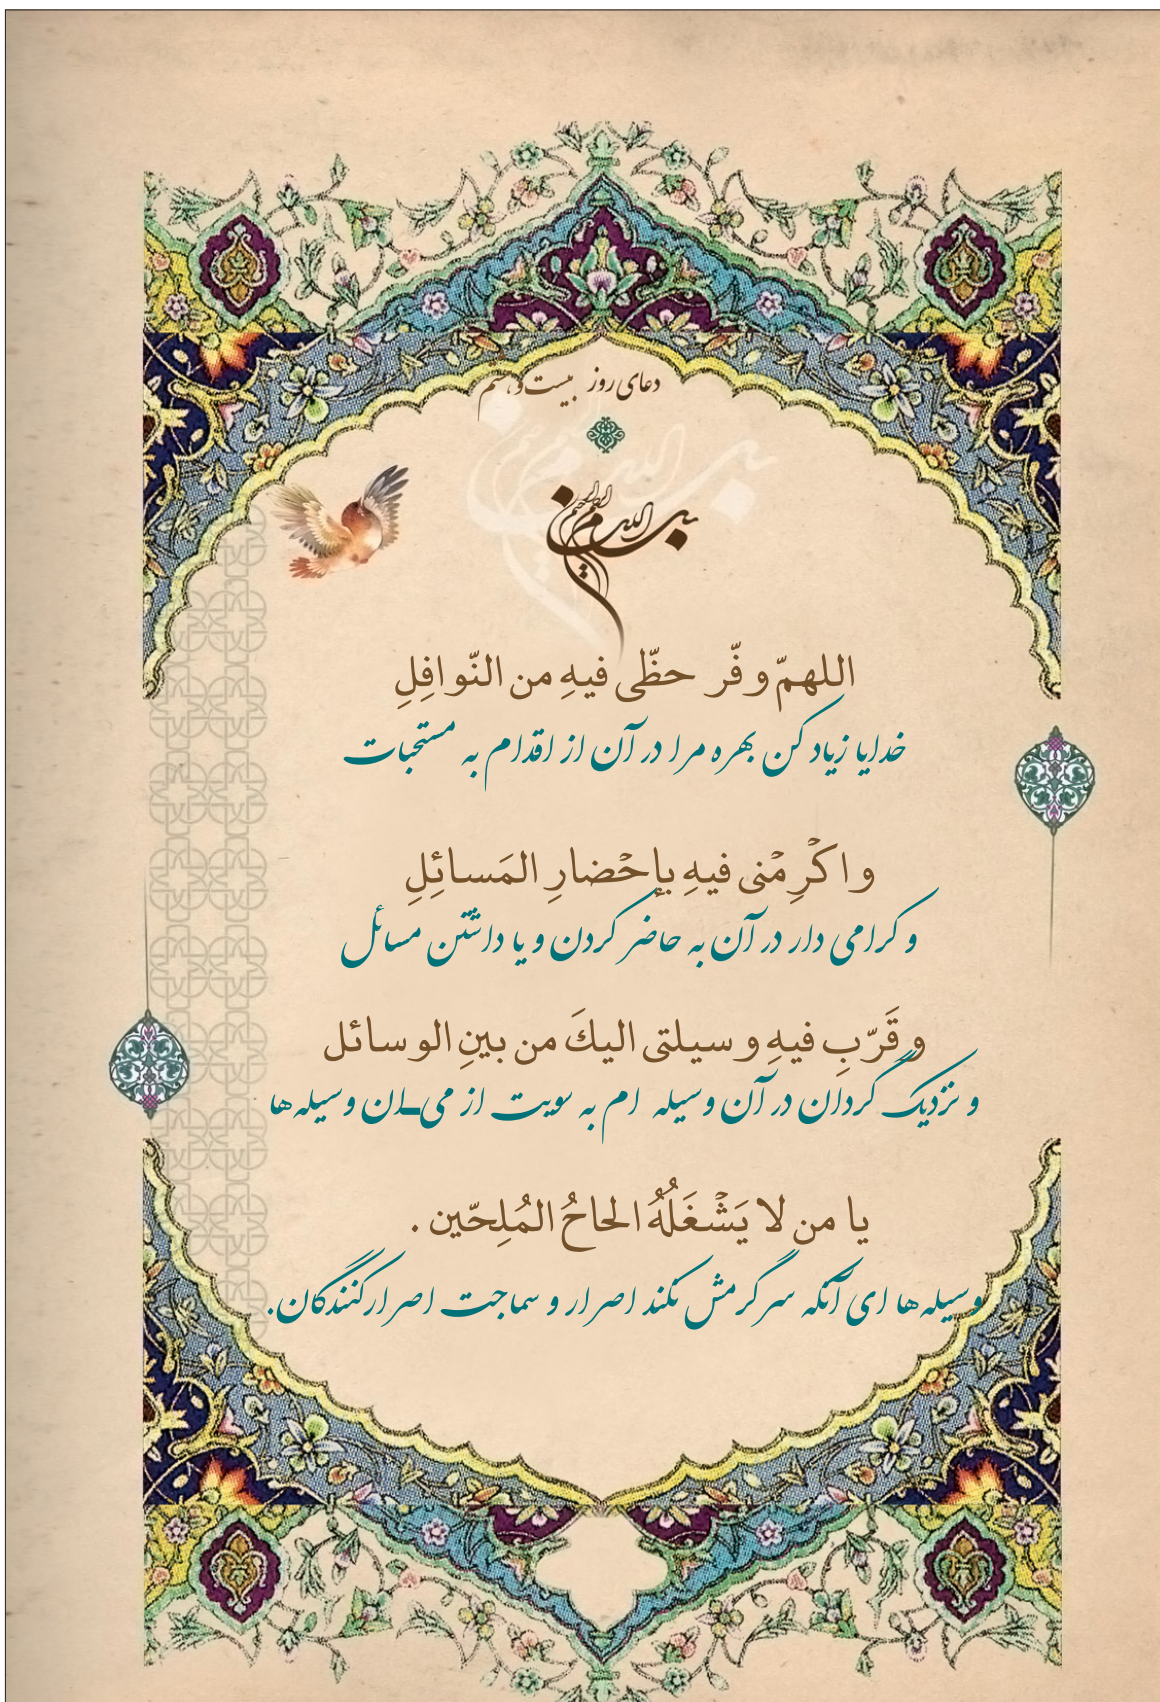 دعای روز بیست و هشتم
بسم الله الرحمن الرحیم
اللهمّ وفّر حظّی فیهِ من النّوافِلِ
خدایا زیاد کن بهره مرا در آن از اقدام به مستحبات
و اکْرِمْنی فیهِ بإحْضارِ المَسائِلِ
و گرامی دار در آن به حاضر کردن و یا داشتن مسائل
و قَرّبِ فیهِ وسیلتی الیكَ من بینِ الوسائل
و نزدیک گردان در آن وسیله ام به سویت از میـان وسیله ها
یا من لا یَشْغَلُهُ الحاحُ المُلِحّین .
وسیله ها ای آنکه سرگرمش نکند اصرار و سماجت اصرارکنندگان.